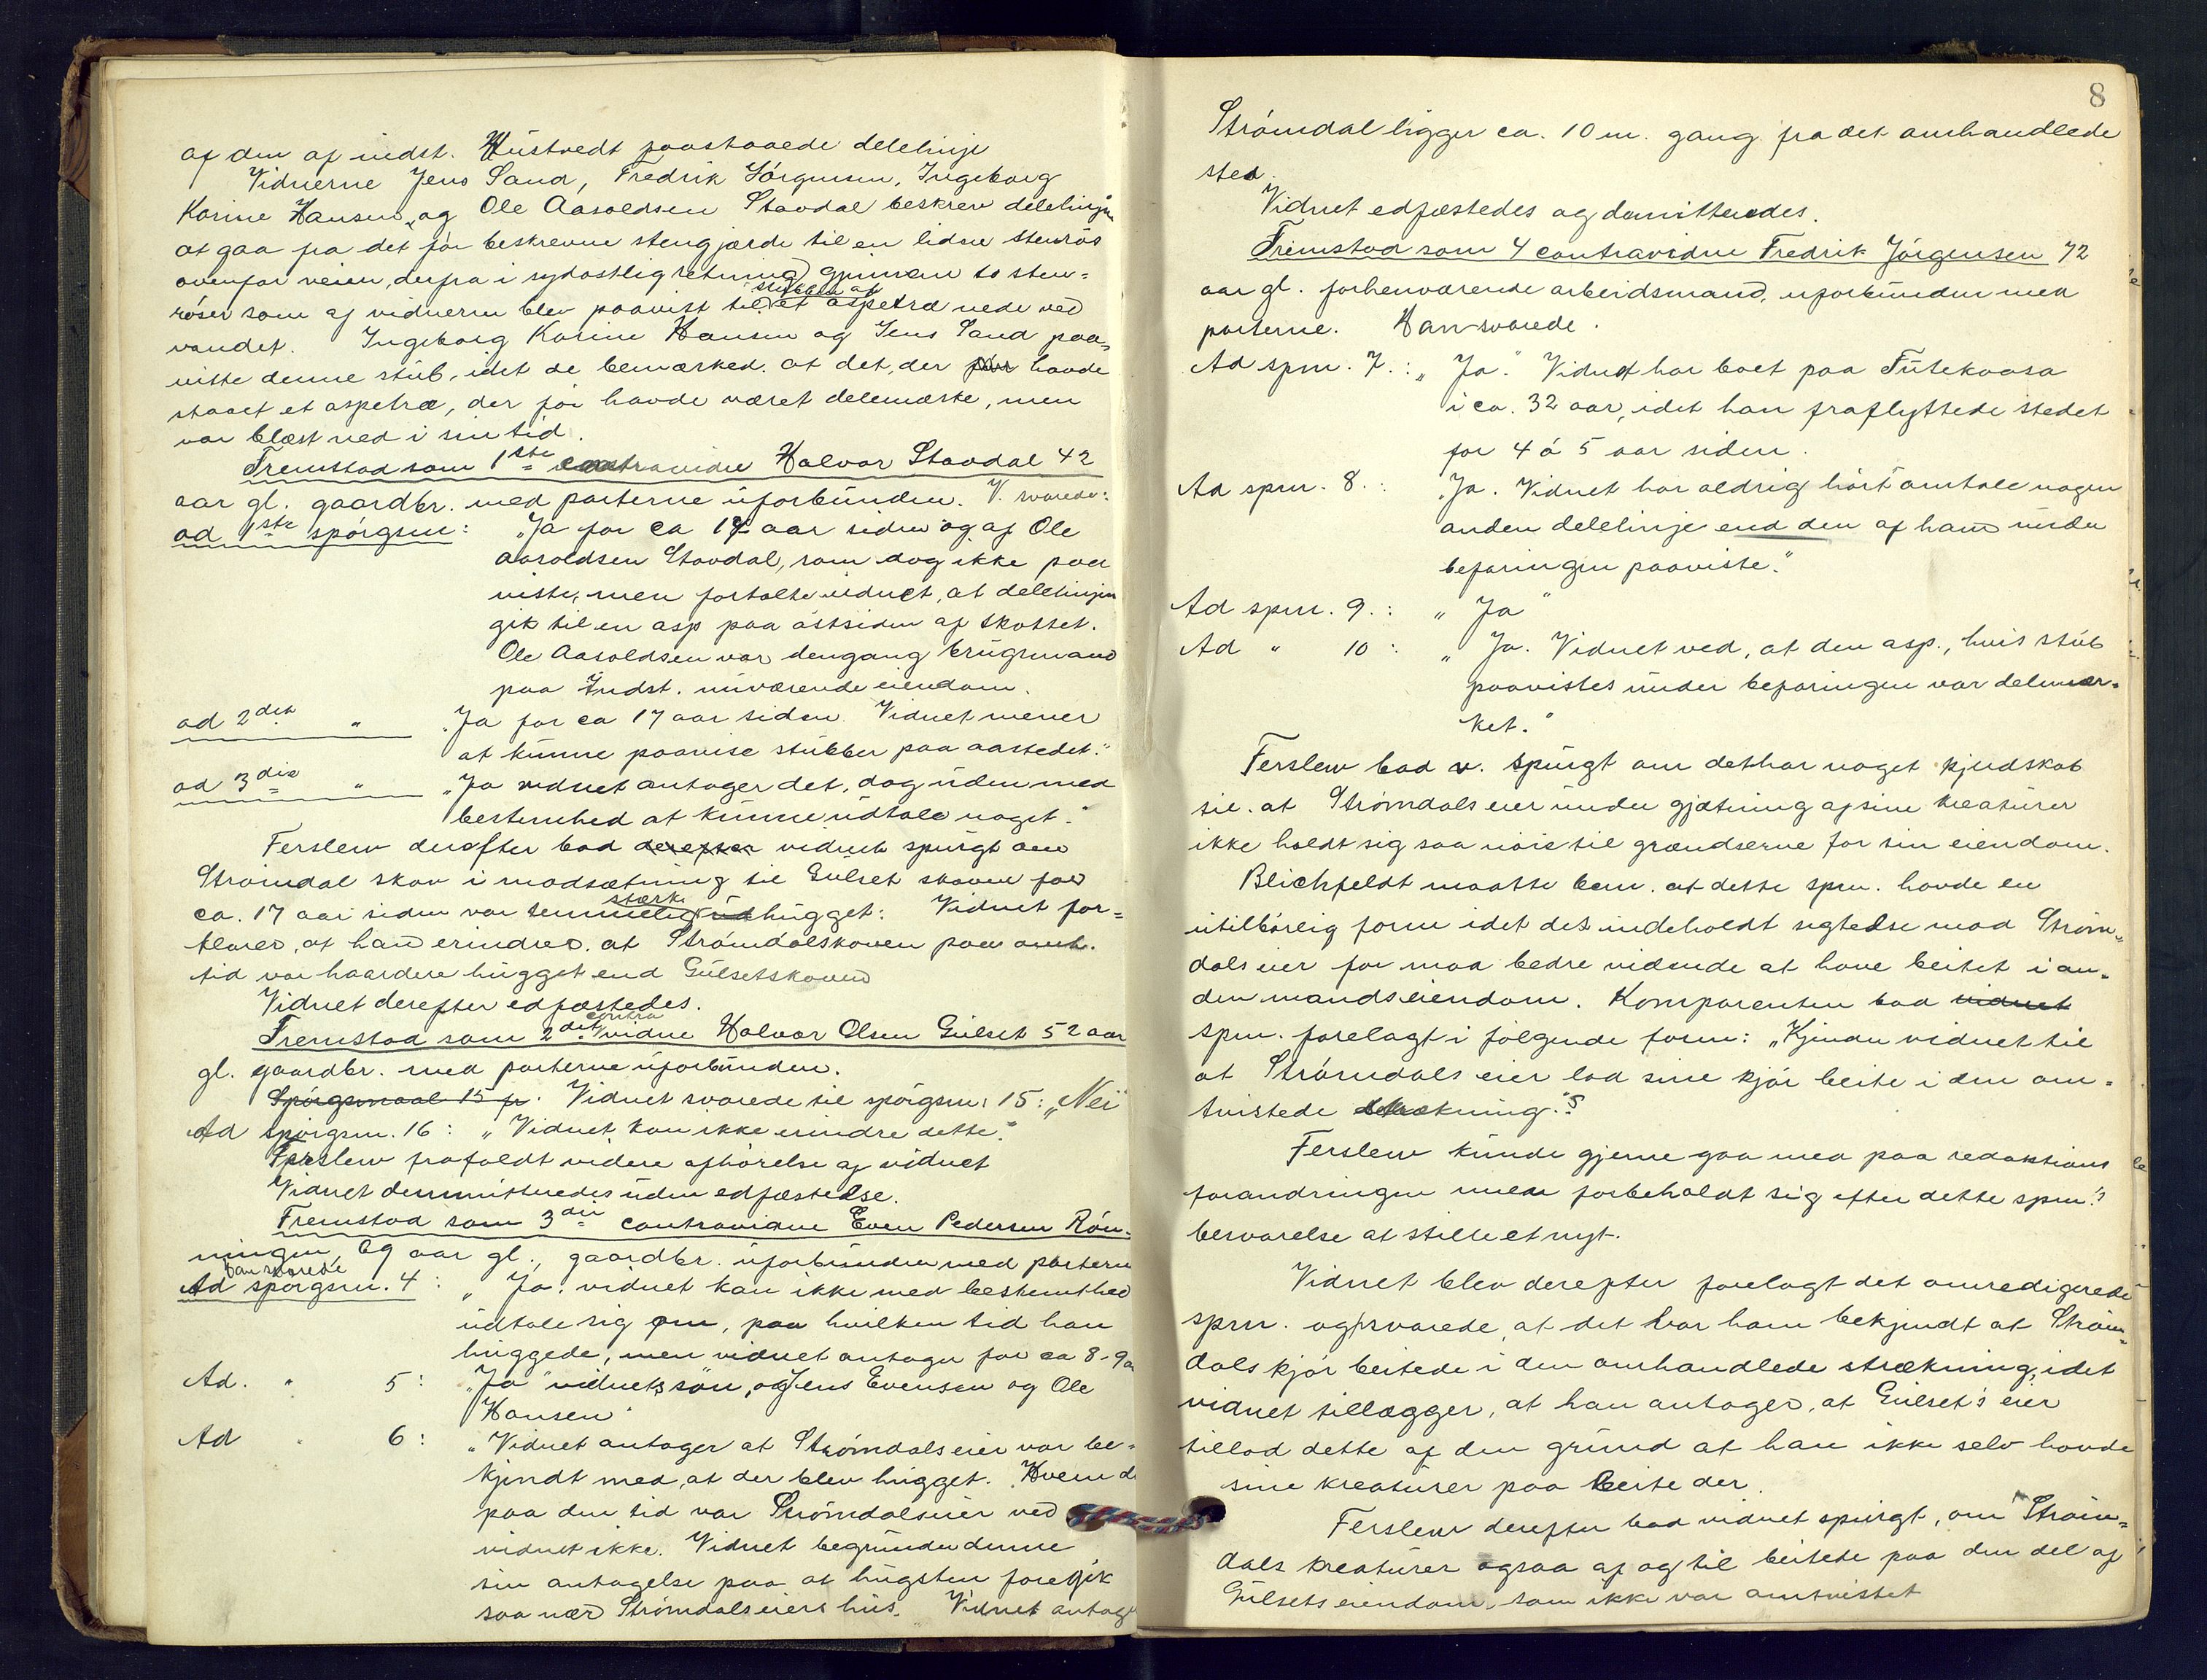 af den af indst. Hustvedt paastaaede delelinje
Vidnerne Jens Sand, Fredrik Jörgensen, Ingeborg
Karine Hansen, og Ole Aasoldsen Stavdal beskrev delelinjen
at gaa fra det för beskrevne stengjærde til en liden stenrös
ovenfor veien, derfra i sydostlig retning gjennem to sten-
röser som af vidnerne blev paavist til stubben af et aspetræ nede ved
vandet. Ingeborg Karine Hansen og Jens Sand paa-
viste denne stub, idet de bemærked. at det, der havde
staaet et aspetræ, der för havde været delemærke, men
var blæst ned i sin tid.
Fremstod som 1ste contravidne Halvor Stavdal 42
aar gl. gaardbr. med parterne uforbunden. V. svarede:
ad 1ste spörgsm: „Ja for ca 17 aar siden og af Ole
Aasoldsen Stavdal, som dog ikke paa
viste, men fortalte vidnet, at delelinjen
gik til en asp paa östsiden af skottet.
Ole Aasoldsen var dengang brugsmand
paa Indst. nuværende eiendom.
ad 2det " „Ja for ca 17 aar siden. Vidnet mener
at kunne paavise stubber paa aastedet."
ad 3die " „Ja vidnet antager det, dog uden med
bestemthed at kunne udtale noget."
Ferslew derefter bad derefter vidnet spurgt om
Strömdal skov i modsætning til Gulset skoven for
ca. 17 aar siden var temmelig stærk udhugget: Vidnet for-
klarer, at han erindrer. at Strömdalskoven paa omh.
tid var haardere hugget end Gulsetskoven
Vidnet derefter edfæstedes.
Fremstod som 2det contra vidne Halvor Olsen Gulset 52 aar
gl. gaardbr. med parterne uforbunden.
Spörgsmaal 15 fr. Vidnet svarede til spörgsm. 15: „Nei"
Ad spörgsm. 16: „Vidnet kan ikke erindre dette."
Ferslew frafaldt videre afhörelse af vidnet
Vidnet demmitteredes uden edfæstelse.
Fremstod som 3die contravidne Even Pedersen Rön-
ningen, 69 aar gl., gaardbr. uforbunden med parterne
Han svarede
Ad spörgsm. 4: „Ja. vidnet kan ikke med bestemthed
udtale sig om, paa hvilken tid han
huggede, men vidnet antager for ca 8-9 a
Ad. " 5: „Ja" vidnets sön, og Jens Evensen og Ole
Hansen"
Ad " 6: „Vidnet antager at Strömdals eier var be-
kjendt med, at der blev hugget. Hvem d
paa den tid var Strömdalseier ved
vidnet ikke. Vidnet begrunder denne
sin antagelse paa at hugsten foregik
saa nær Strömdalseiers hus. Vidnet antag
8
Strömdal ligger ca. 10 m. gang fra det omhandlede
sted.
Vidnet edfæstedes og demitteredes.
Fremstod som 4 contravidne Fredrik Jörgensen 72
aar gl. forhenværende arbeidsmand, uforbunden med
parterne. Han svarede.
Ad spm. 7.: „Ja." Vidnet har boet paa Futekaasa
i ca. 32 aar, idet han fraflyttede stedet
for 4 á 5 aar siden.
Ad spm. 8.: „Ja. Vidnet har aldrig hört omtale nogen
anden delelinje end den af ham under
befaringen paaviste."
Ad spm. 9.: „Ja"
Ad " 10: „Ja. Vidnet ved, at den asp., hvis stub
paavistes under befaringen var delemær-
ket."
Ferslew bad v. spurgt om det har noget kjendskab
til. at Strömdals eier under gjætning af sine kreaturer
ikke holdt sig saa nöie til grændserne for sin eiendom.
Blichfeldt maatte bem. at dette spm. havde en
utilbörlig form idet det indeholdt sigtelse mod Ström-
dals eier for mod bedre vidende at have beitet i an-
den mands eiendom. Komparenten bad vidnet
spm. forelagt i fölgende form: „Kjender vidnet til
at Strömdals eier lod sine kjör beite i den om-
tvistede strækning."?
Ferslew kunde gjerne gaa med paa redaktions
forandringen men forbeholdt sig efter dette spm's
besvarelse at stille et nyt.
Vidnet blev derefter forelagt det omredigerede
spm. og svarede, at det var ham bekjendt at Ström-
dals kjör beitede i den omhandlede strækning, idet
vidnet tillægger, at han antager, at Gulset's eier
tillod dette af den grund at han ikke selv havde
sine kreaturer paa beite der.
Ferslew derefter bad vidnet spurgt, om Ström-
dals kreaturer ogsaa af og til beitede paa den del af
Gulsets eiendom, som ikke var omtvistet